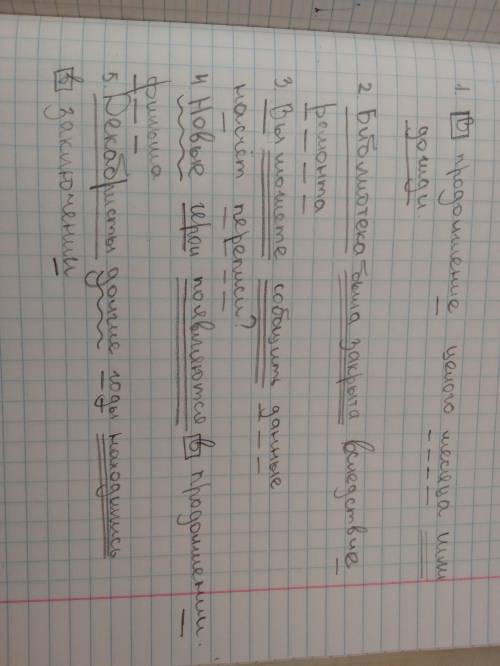 1. В продолжение целого месяца шли
дожди
2. Библиотека была закрыта вследствие
ремонта
3. Вы можете собщить данные
насчёт переписи?
4. Новые герои появляются в продолжении
фильма
5. Декабристы долгие годы находились
в заключении